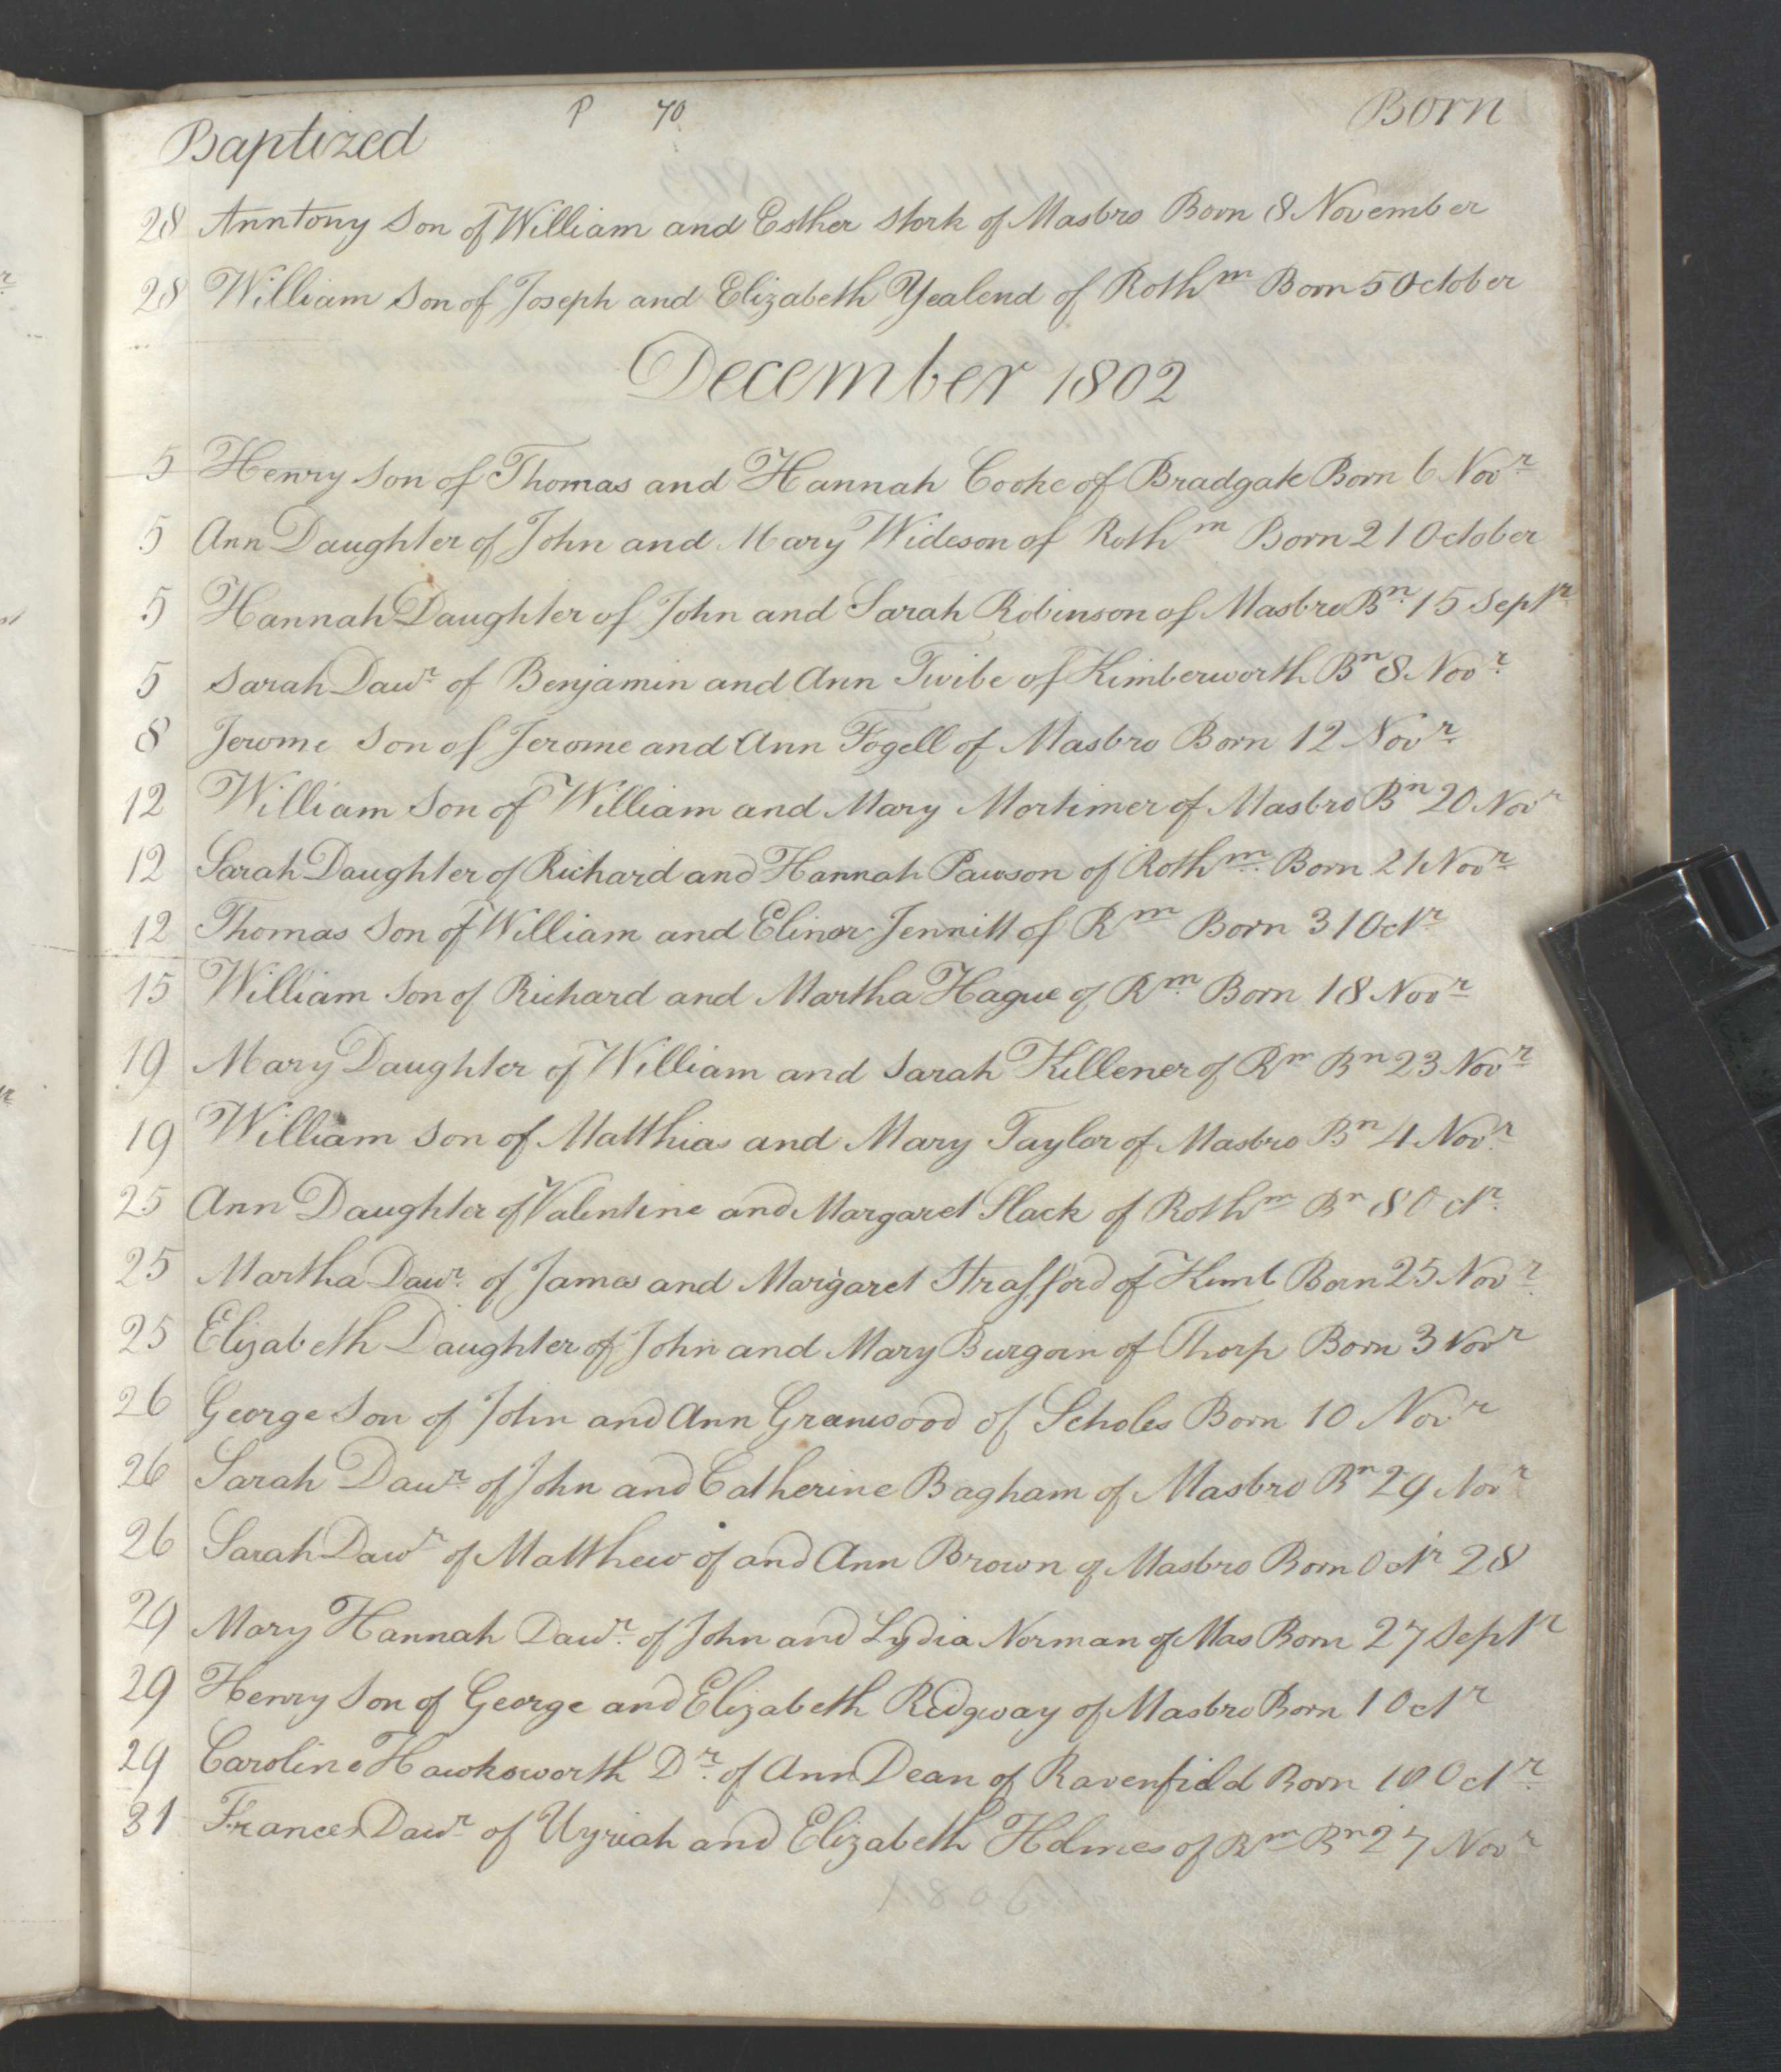 P 70
Baptized Born
28 Anntony Son of William and Esther Stork of Masbro Born 8 November
28 William Son of Joseph and Elizabeth Yealend of Rothm Born 5 October
December 1802
5 Henry Son of Thomas and Hannah Cooke of Bradgate Born 6 Novr
5 Ann Daughter of John and Mary Wideson of Rothm Born 21 October
5 Hannah Daughter of John and Sarah Robinson of Masbro Bn 15 Septr
5 Sarah Dawr of Benjamin and Ann Twibe of Kimberworth Bn 8 Novr
8 Jerome Son of Jerome and Ann Fogell of Masbro Born 12 Novr
12 William Son of William and Mary Mortimer of Masbro Bn 20 Novr
12 Sarah Daughter of Richard and Hannah Pawson of Rothm Born 21 Novr
12 Thomas Son of William and Elinor Jennitt of Rm Born 31 Octr
15 William Son of Richard and Martha Hague of Rm Born 18 Novr
19 Mary Daughter of William and Sarah Killener of Rm Bn 23 Novr
19 William Son of Matthias and Mary Taylor of Masbro Bn 4 Novr
25 Ann Daughter of Valentine and Margaret Slack of Rothm Bn 8 Octr
25 Martha Dawr of James and Margaret Strafford of Kimb Born 25 Novr
25 Elizabeth Daughter of John and Mary Burgoin of Thorp Born 3 Novr
26 George Son of John and Ann Granwood of Scholes Born 10 Novr
26 Sarah Dawr of John and Catherine Bagham of Masbro Bn 29 Novr
26 Sarah Dawr of Matthew of and Ann Brown of Masbro Born Octr 28
29 Mary Hannah Dawr of John and Lydia Norman of Mas Born 27 Septr
29 Henry Son of George and Elizabeth Ridgway of Masbro Born 1 Octr
29 Caroline Hawksworth Dr of Ann Dean of Ravenfield Born 10 Octr
31 Frances Dawr of Uyriah and Elizabeth Holmes of Rm Bn 27 Novr